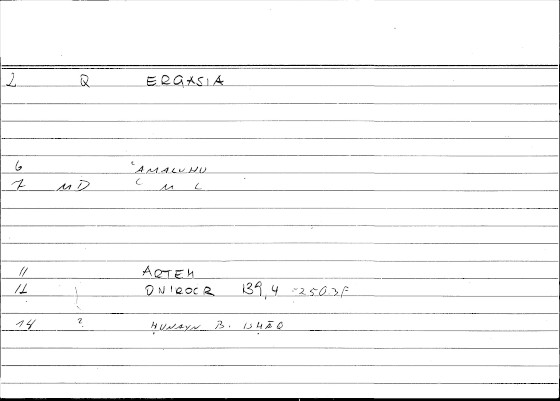 2 Q ERGASIA
6 ʿAMALUHU
7 MD ʿ M L
11 ARTEM
12 ONIROCR 139,4 -250.3F
14 ? ḤUNAYN B. ISḤĀQ